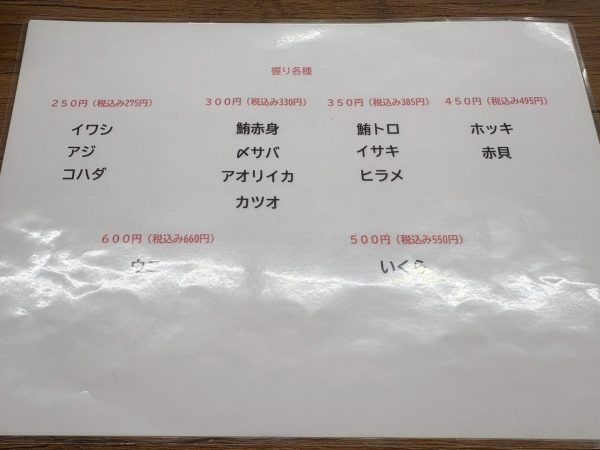 握り各種
250円(税込み275円)
イワシ
アジ
コハダ
300円(税込み330円)
鮪赤身
〆サバ
アオリイカ
カツオ
350円(税込み385円)
鮪トロ
イサキ
ヒラメ
450円(税込み495円)
ホッキ
赤貝
600円(税込み660円)
ウニ
500円(税込み550円)
いくら